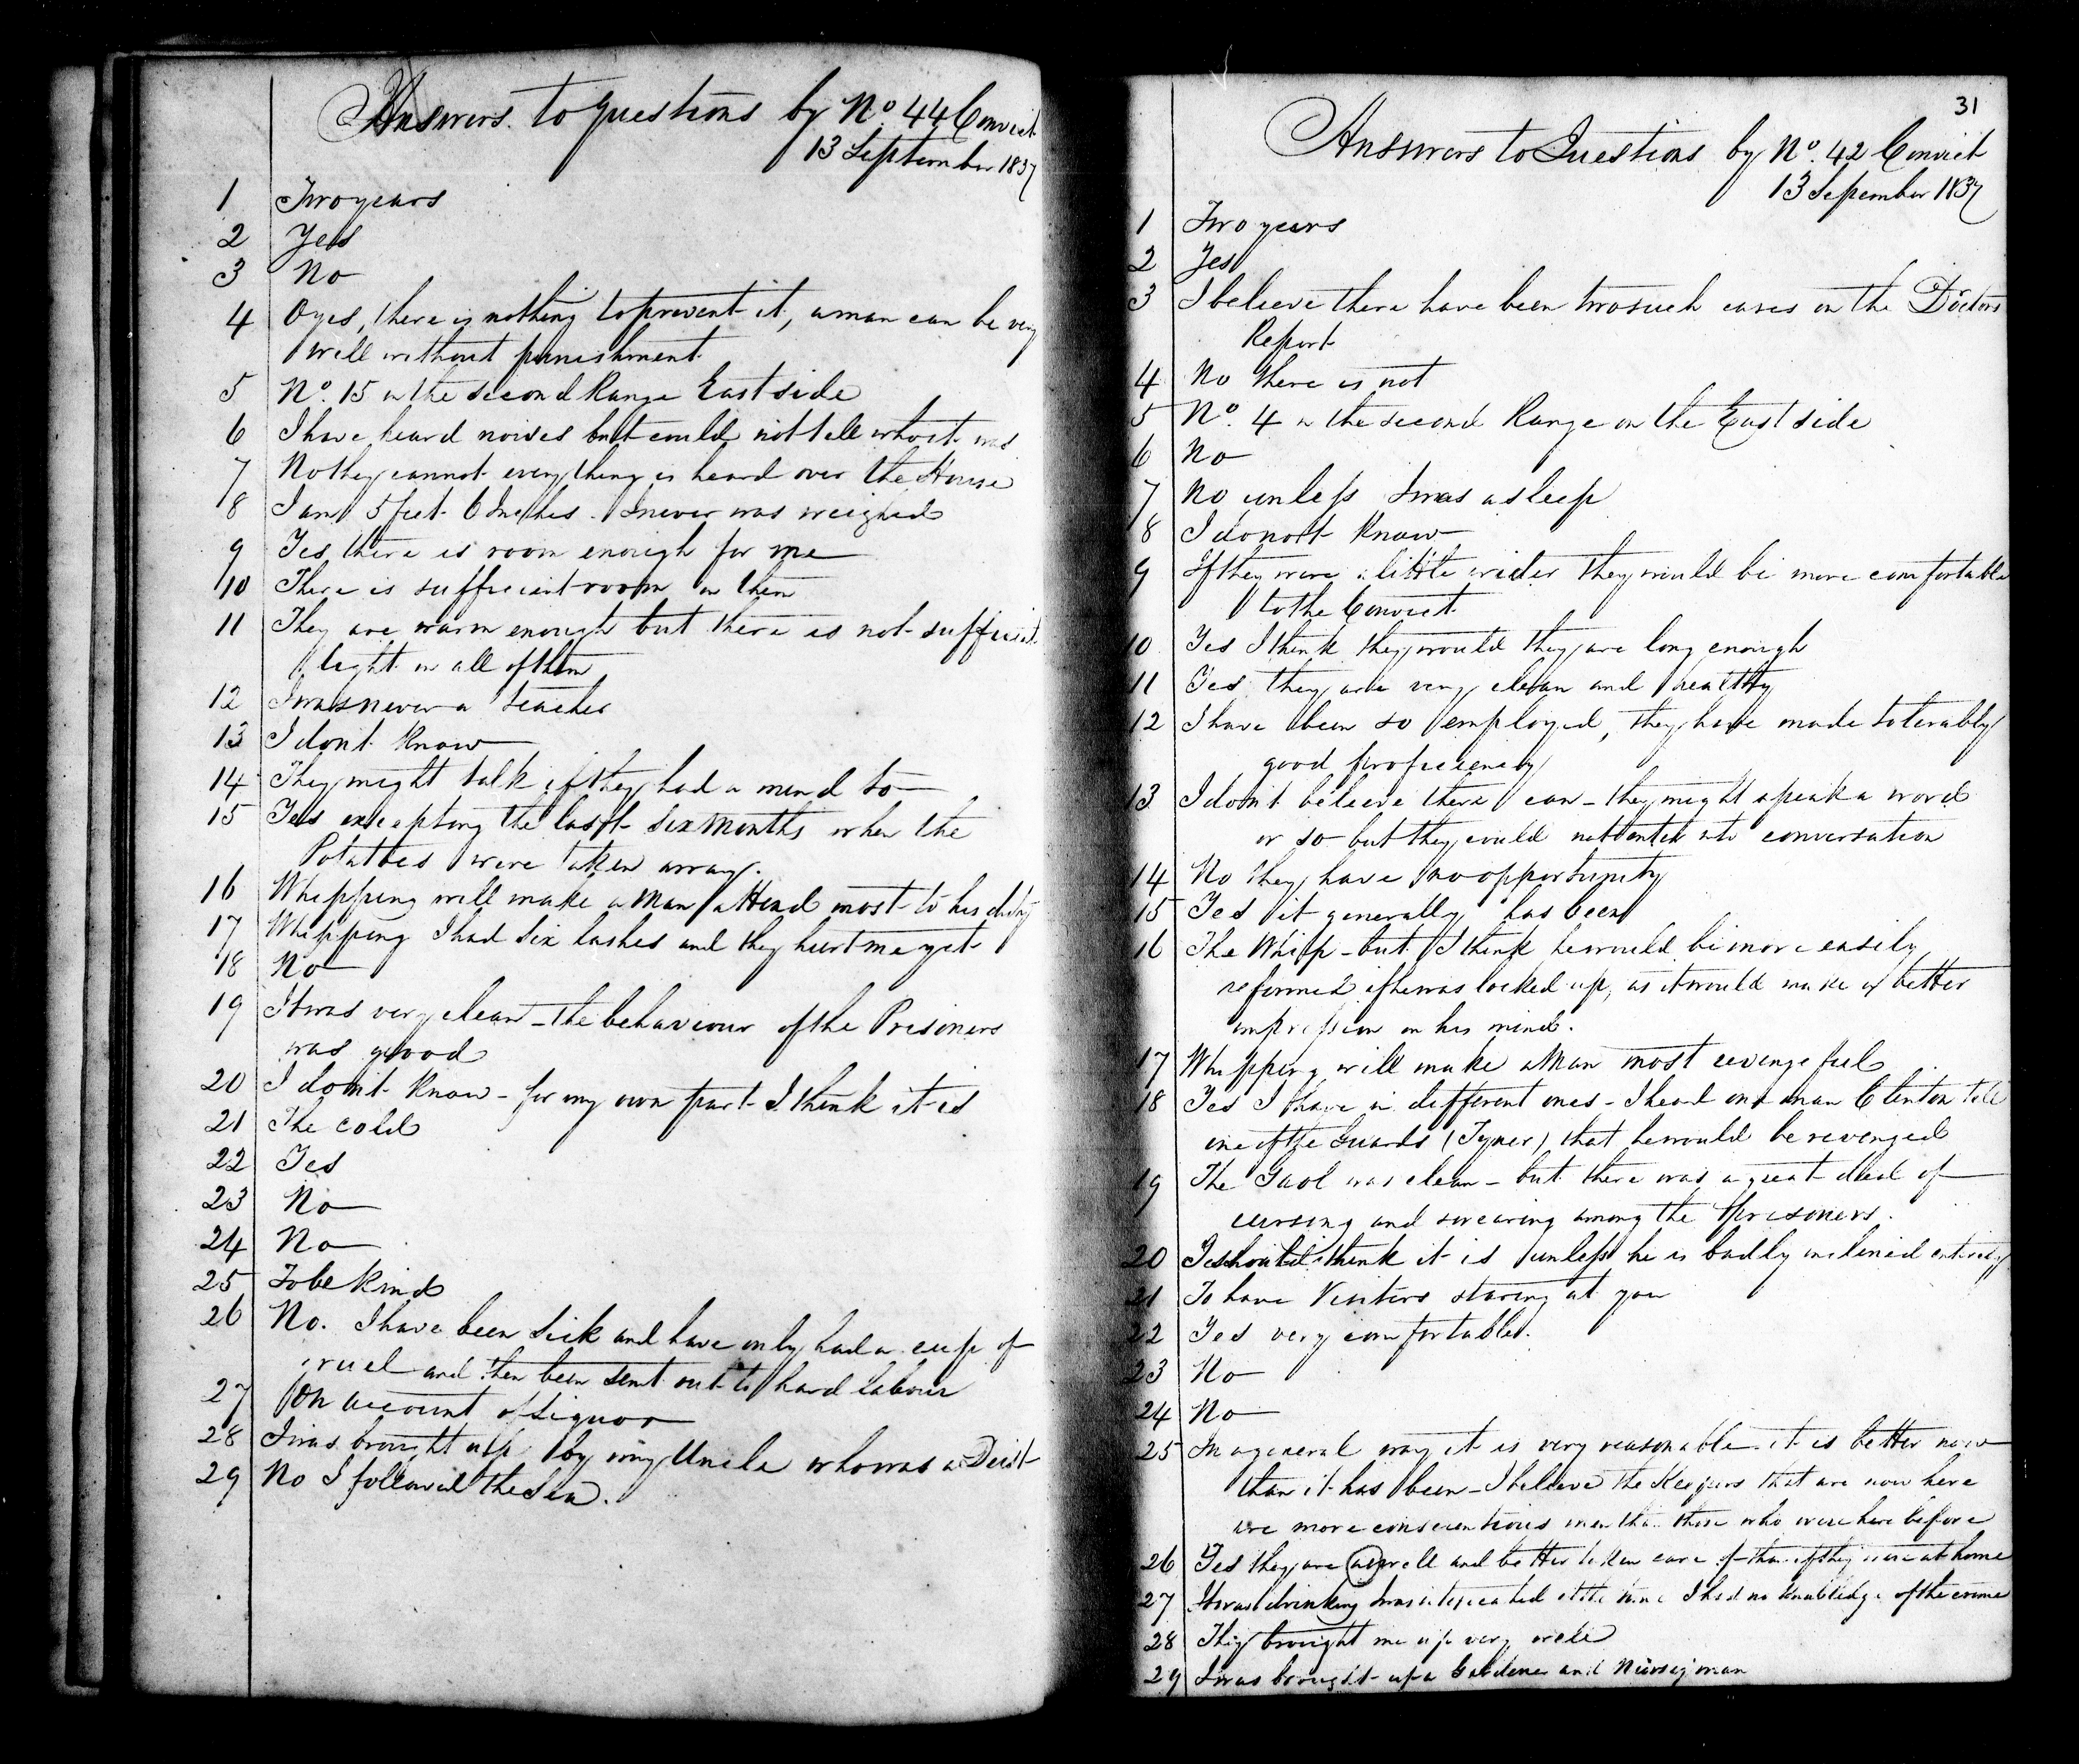 Answers to questions by No. 44 Convict
13 September 1837
1 Two years
2 Yes
3 No
4 O yes, there is nothing to prevent it, a man can be very
well without punishment
5 No. 15 in the second Range East side
6 I have heard noises but could not tell who it was
7 No they cannot every thing is heard over the House
8 I am 5 feet 6 Inches. I never was weighed
9 Yes there is room enough for me
10 There is sufficient room in them
11 They are warm enough but there is not sufficient
light in all of them
12 I was never a teacher
13 I don't know
14 They might talk if they had a mind to
15 Yes excepting the last six months when the
Potatoes were taken away.
16 Whipping will make a man attend most to his duty
17 Whipping I had six lashes and they hurt me yet
18 No
19 It was very clean - the behaviour of the Prisoners
was good
20 I don't know - for my own part I think it is
21 The cold
22 Yes
23 No
24 No
25 To be kind
26 No. I have been sick and have only had a cup of
gruel and then been sent out to hard labour
27 On account of Liquor
28 I was brought up by my Uncle who was a Deist
29 No I followed the Sea.
31
Answers to Questions by No. 42 Convict
13 Sepember 1837
1 Two years
2 Yes
3 I believe there have been two such cases on the Doctors
Report
4 No there is not
5 No. 4 in the second Range on the East side
6 No
7 No unless I was asleep
8 I do not know
9 If they were a little wider they would be more comfortable
to the Convict
10 Yes I think they would they are long enough
11 Yes they are very clean and healthy
12 I have been so employed, they have made tolerably
good proficiency
13 I don't believe there can - they might speak a word
or so but they could not enter into conversation
14 No they have no opportunity
15 Yes it generally has been
16 The Whip - but I think he would be more easily
reformed if he was locked up, as it would make a better
impression on his mind.
17 Whipping will make a Man most revengefull
18 Yes I have in different ones - I heard one man Clinton tell
one of the Guards (Tyner) that he would be revenged
19 The Gaol was clean - but there was a great deal of
cursing and swearing among the prisoners.
20 I should think it is unless he is badly inclined entirely
21 To have Visitors staring at you
22 Yes very comfortable.
23 No
24 No
25 In a general way it is very reasonable it is better now
than it has been - I believe the Keepers that are now here
are more conscientious men than those who were here before
26 Yes they are as well and better taken care of than if they were at home
27 It was drinking I was intoxicated at the time I had no knowledge of the crime
28 They brought me up very well
29 I was brought up a Gardener and Nurseyman